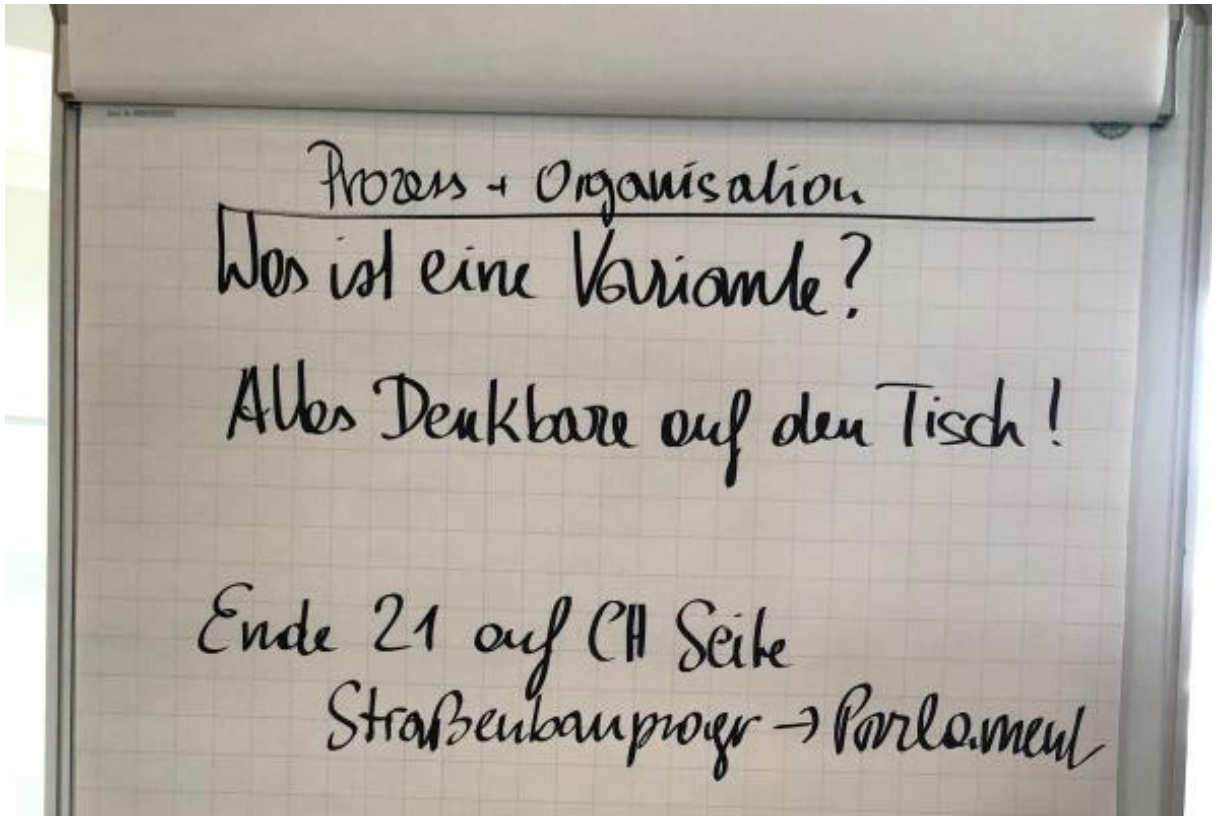 Prozess + Organisation
Was ist eine Variante?
Alles Denkbare auf den Tisch!
Ende 21 auf CH Seite
Straßenbauprogr → Parlament